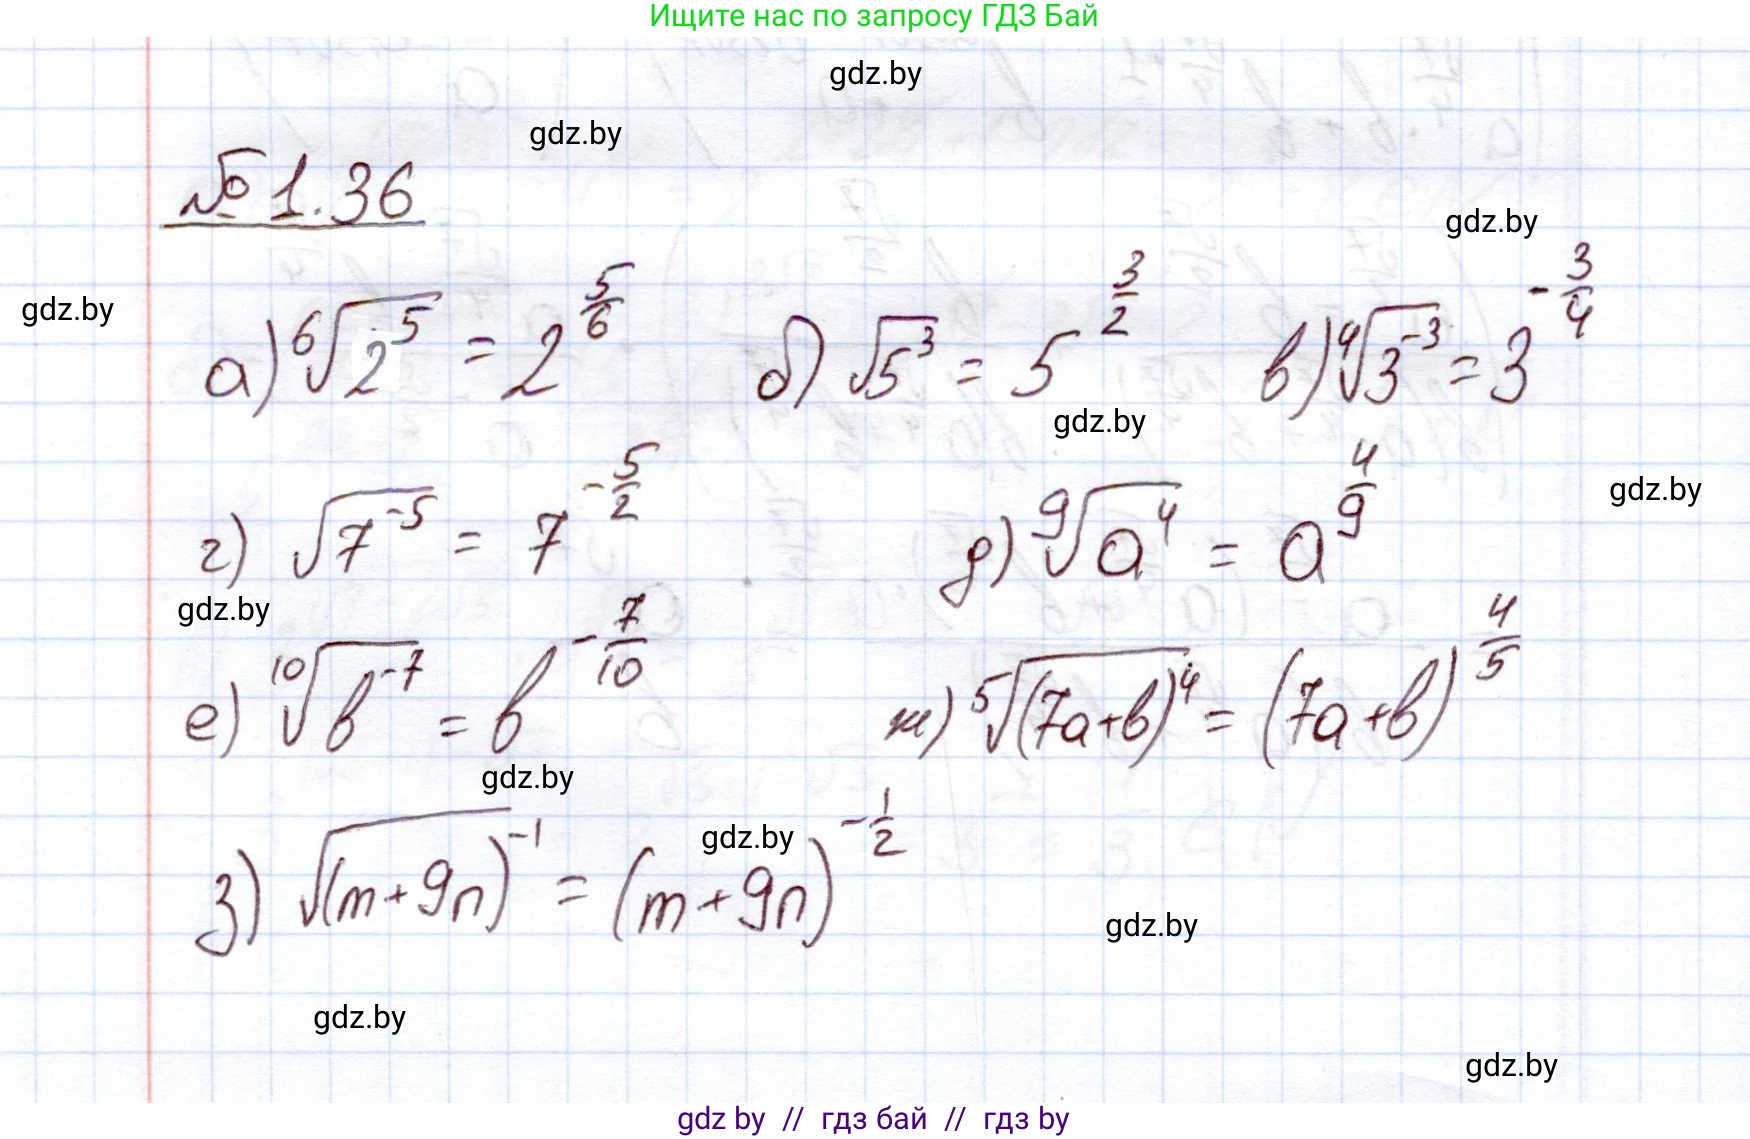 Ищите нас по запросу ГДЗ Бай
gdz.by
gdz.by
№ 1.36
gdz.by
gdz.by
а) ⁶√(2⁵) = 2^(5/6) б) √(5³) = 5^(3/2) в) ⁴√(3⁻³) = 3^(-3/4)
gdz.by
gdz.by
г) √(7⁻⁵) = 7^(-5/2) д) ⁹√(a⁴) = a^(4/9)
gdz.by
е) ¹⁰√(b⁻⁷) = b^(-7/10) ж) ⁵√((7a+b)⁴) = (7a+b)^(4/5)
gdz.by
gdz.by
з) √((m+9n)⁻¹) = (m+9n)^(-1/2)
gdz.by
gdz.by
gdz.by
gdz by // гдз бай // гдз by